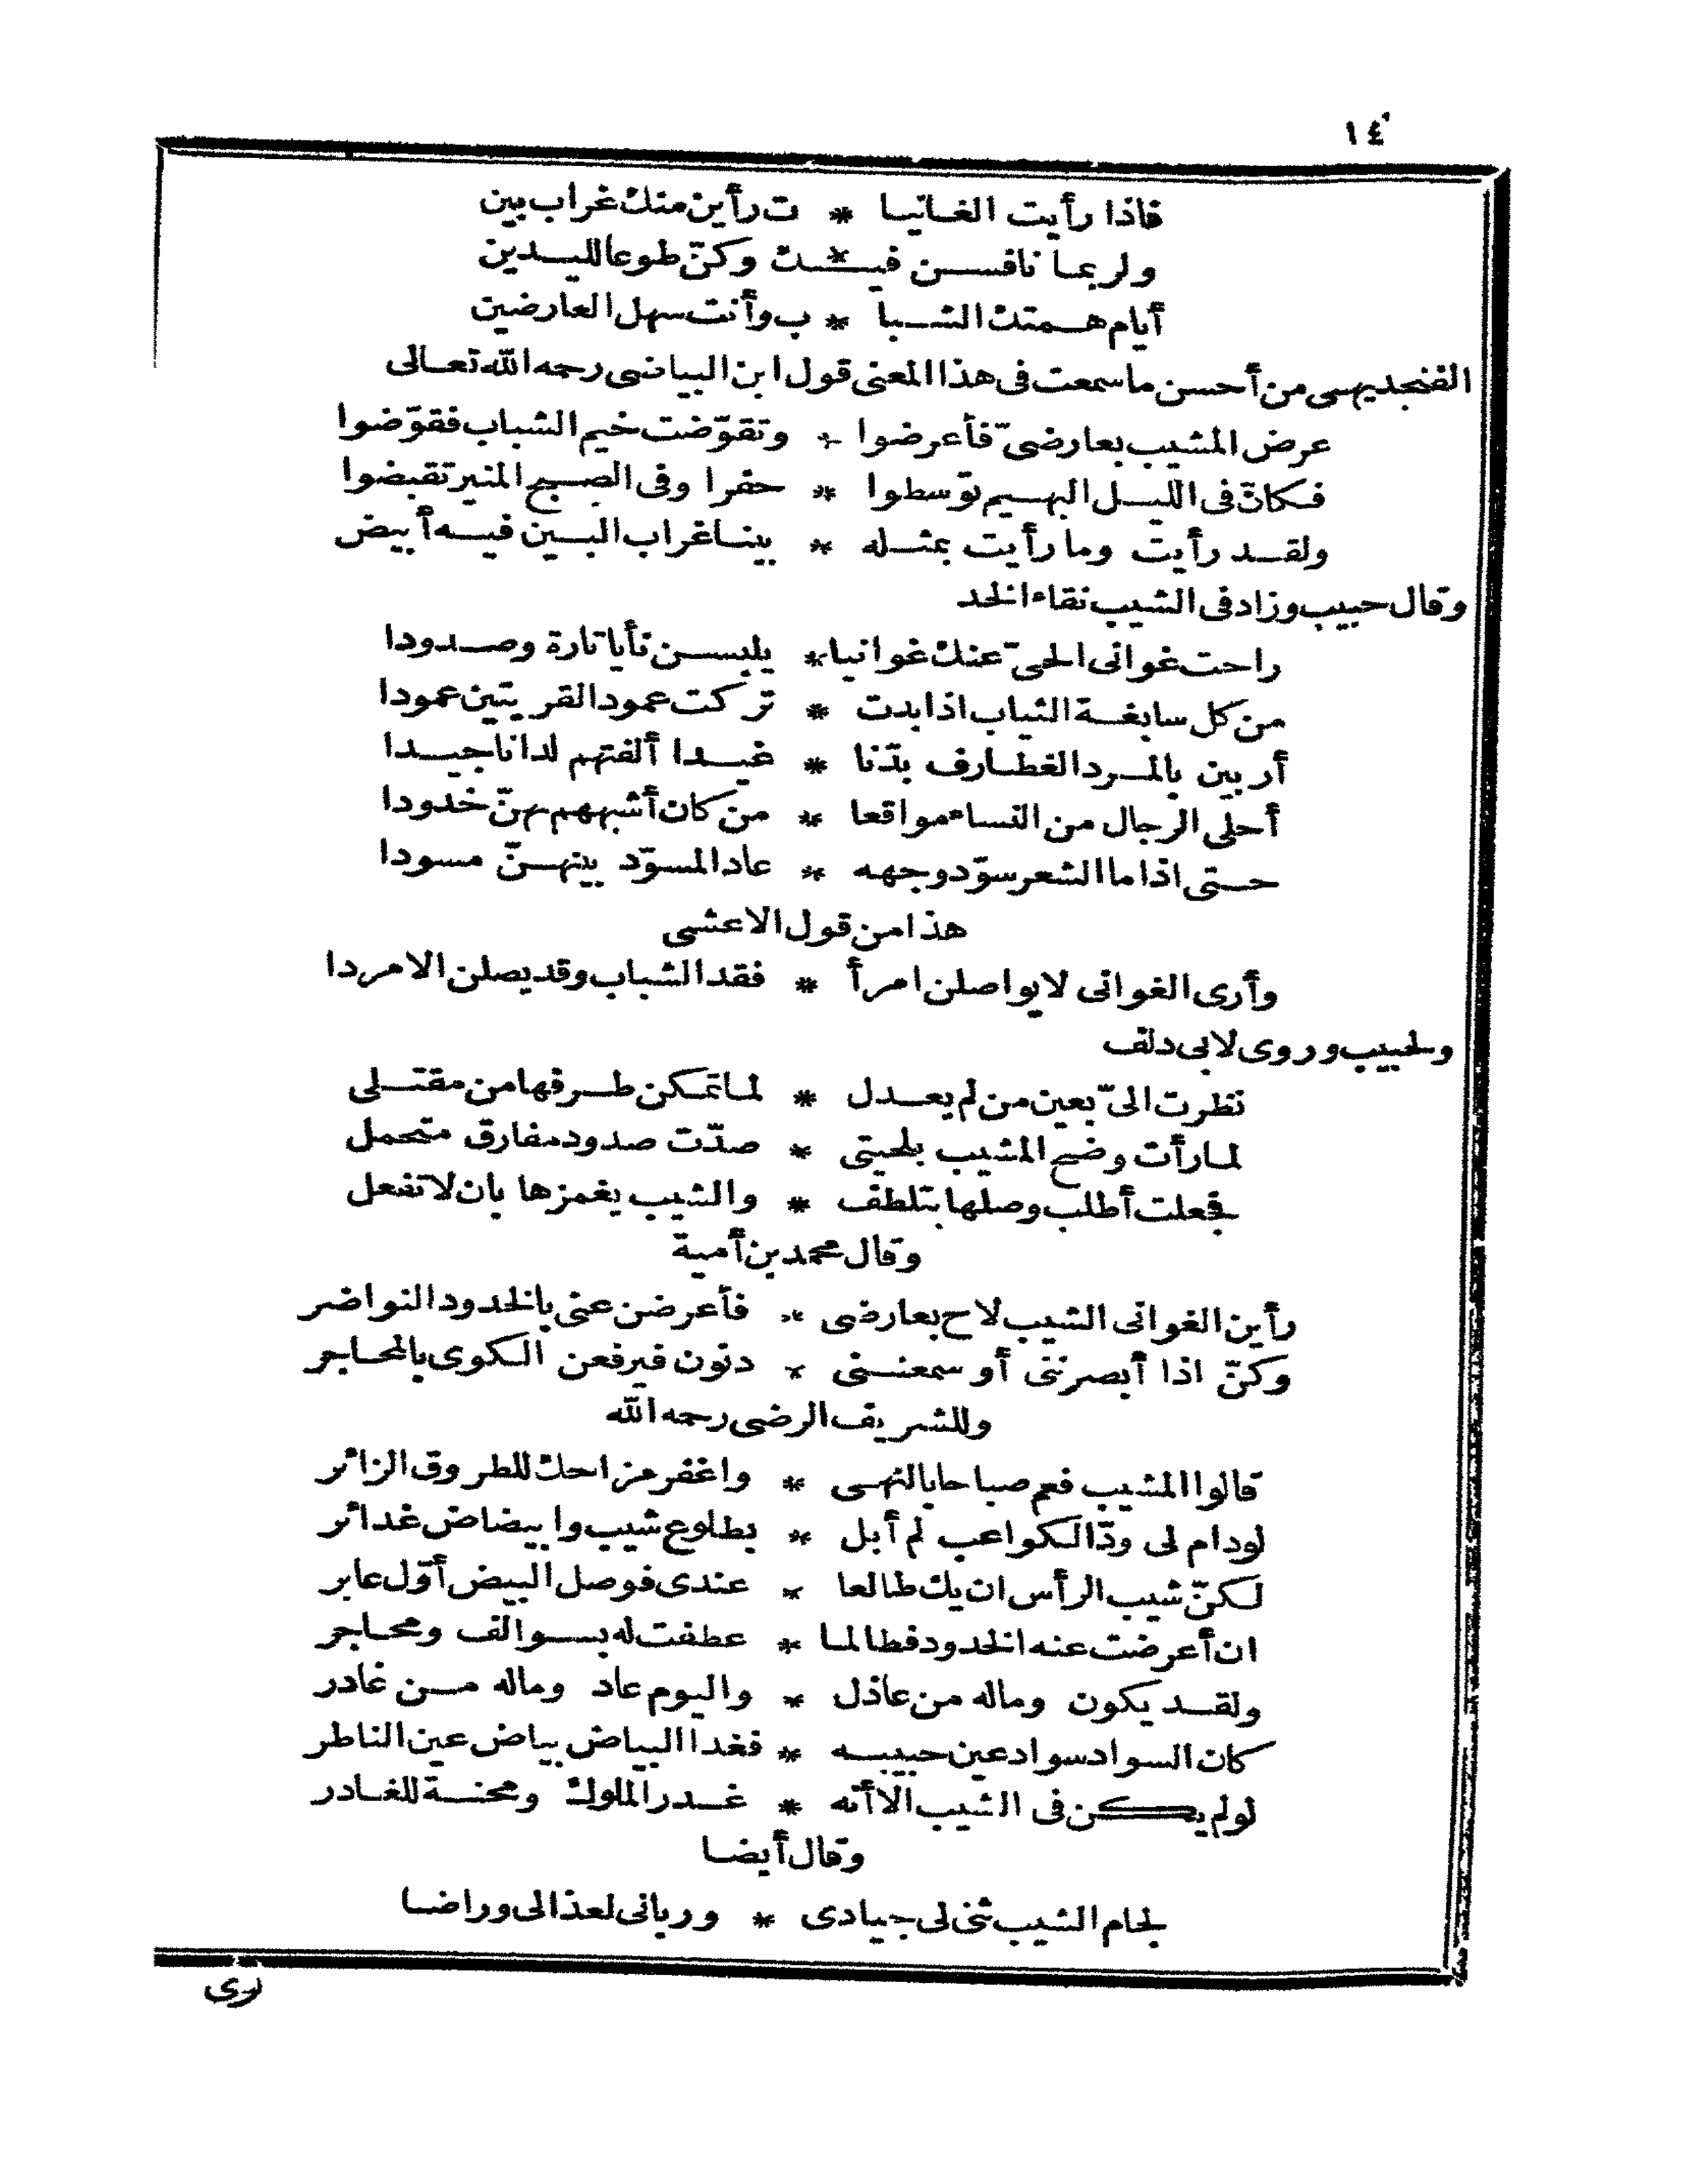 ١٤
فاذا رأيت الغانيا * ت رأين منك غراب بين
ولربما نافسن فيـ*ـك وكنّ طوعا لليدين
أيام همتك الشبا * ب وأنت سهل العارضين
الفنجديهى من أحسن ما سمعت فى هذا المعنى قول ابن البياضى رحمه الله تعالى
عرض المشيب بعارضىّ فأعرضوا * وتقوّضت خيم الشباب فقوّضوا
فكانّ فى الليل البهيم توسطوا * حفرا وفى الصبح المنير تقبضوا
ولقد رأيت وما رأيت بمثله * بينا غراب البين فيه أبيض
وقال حبيب وزاد فى الشيب نقاء الخد
راحت غوانى الحىّ عنك غوانيا * يلبسن نأيا تارة وصدودا
من كل سابغة الثياب اذا بدت * تركت عمود القريتين عمودا
أربين بالمرد الغطارف بدّنا * غيدا ألفتهم لدانا جيدا
أحلى الرجال من النساء مواقعا * من كان أشبههم بهنّ خدودا
حتى اذا ما الشعر سوّد وجهه * عاد المسوّد بينهنّ مسودا
هذا من قول الاعشى
وأرى الغوانى لا يواصلن امرأ * فقد الشباب وقد يصلن الامردا
ولحبيب وروى لابى دلف
نظرت الىّ بعين من لم يعدل * لما تمكن طرفها من مقتلى
لما رأت وضح المشيب بلحيتى * صدّت صدود مفارق متحمل
فجعلت أطلب وصلها بتلطف * والشيب يغمزها بان لا تفعل
وقال محمد بن أمية
رأين الغوانى الشيب لاح بعارضى * فأعرضن عنى بالخدود النواضر
وكنّ اذا أبصرننى أو سمعننى * دنون فيرفعن الكوى بالمحاجر
وللشريف الرضى رحمه الله
قالوا المشيب فعم صباحا بالنهى * واغفر مزاحك للطروق الزائر
لو دام لى ودّ الكواعب لم أبل * بطلوع شيب وابيضاض غدائر
لكنّ شيب الرأس ان يك طالعا * عندى فوصل البيض أوّل عابر
ان أعرضت عنه الخدود فطالما * عطفت له بسوالف ومحاجر
ولقد يكون وماله من عاذل * واليوم عاد وماله من غادر
كان السواد سواد عين حبيبه * فغدا البياض بياض عين الناظر
لو لم يكن فى الشيب الا أنه * غدر الملوك ومحنة للغادر
وقال أيضا
لجام الشيب ثنى لى جيادى * وربانى لعذالى وراضا